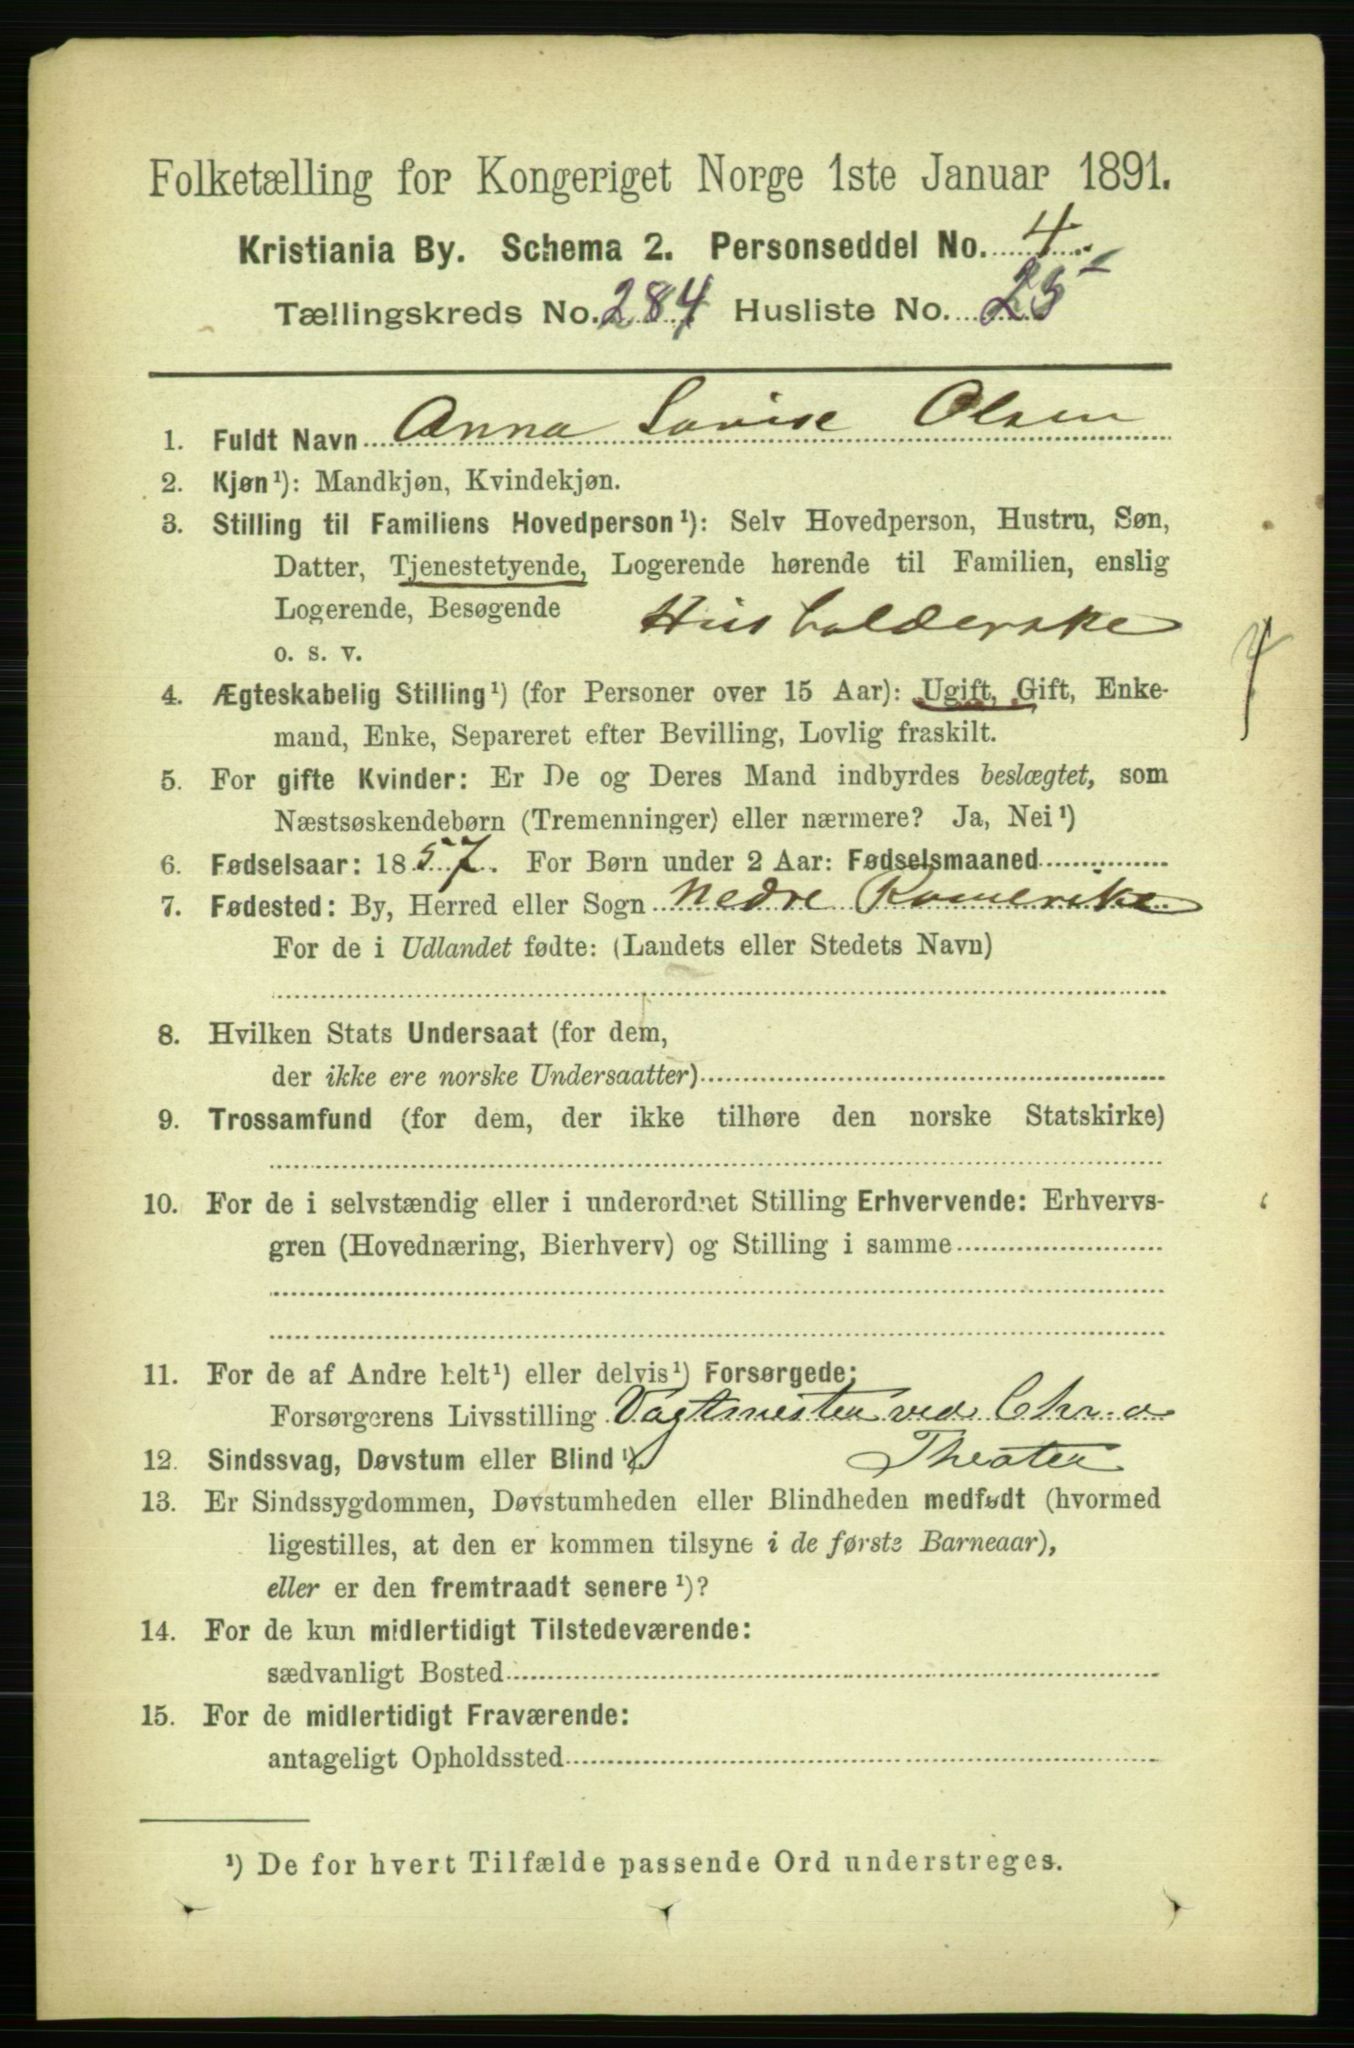 Folketælling for Kongeriget Norge 1ste Januar 1891.
Kristiania By. Schema 2. Personseddel No. 4.
Tællingskreds No. 284 Husliste No. 25
1. Fuldt Navn Anna Lovise Olsen
2. Kjøn¹): Mandkjøn, Kvindekjøn.
3. Stilling til Familiens Hovedperson¹): Selv Hovedperson, Hustru, Søn,
Datter, Tjenestetyende, Logerende hørende til Familien, enslig
Logerende, Besøgende Husholderske
o. s. v.
4. Ægteskabelig Stilling¹) (for Personer over 15 Aar): Ugift, Gift, Enke-
mand, Enke, Separeret efter Bevilling, Lovlig fraskilt.
5. For gifte Kvinder: Er De og Deres Mand indbyrdes beslægtet, som
Næstsøskendebørn (Tremenninger) eller nærmere? Ja, Nei¹)
6. Fødselsaar: 1857. For Børn under 2 Aar: Fødselsmaaned
7. Fødested: By, Herred eller Sogn Nedre Romerike
For de i Udlandet fødte: (Landets eller Stedets Navn)
8. Hvilken Stats Undersaat (for dem,
der ikke ere norske Undersaatter)
9. Trossamfund (for dem, der ikke tilhøre den norske Statskirke)
10. For de i selvstændig eller i underordnet Stilling Erhvervende: Erhvervs-
gren (Hovednæring, Bierhverv) og Stilling i samme
11. For de af Andre helt¹) eller delvis¹) Forsørgede:
Forsørgerens Livsstilling Vagtmester ved Chr.a
12. Sindssvag, Døvstum eller Blind¹) Theater
13. Er Sindssygdommen, Døvstumheden eller Blindheden medfødt (hvormed
ligestilles, at den er kommen tilsyne i de første Barneaar),
eller er den fremtraadt senere¹)?
14. For de kun midlertidigt Tilstedeværende:
sædvanligt Bosted
15. For de midlertidigt Fraværende:
antageligt Opholdssted
¹) De for hvert Tilfælde passende Ord understreges.